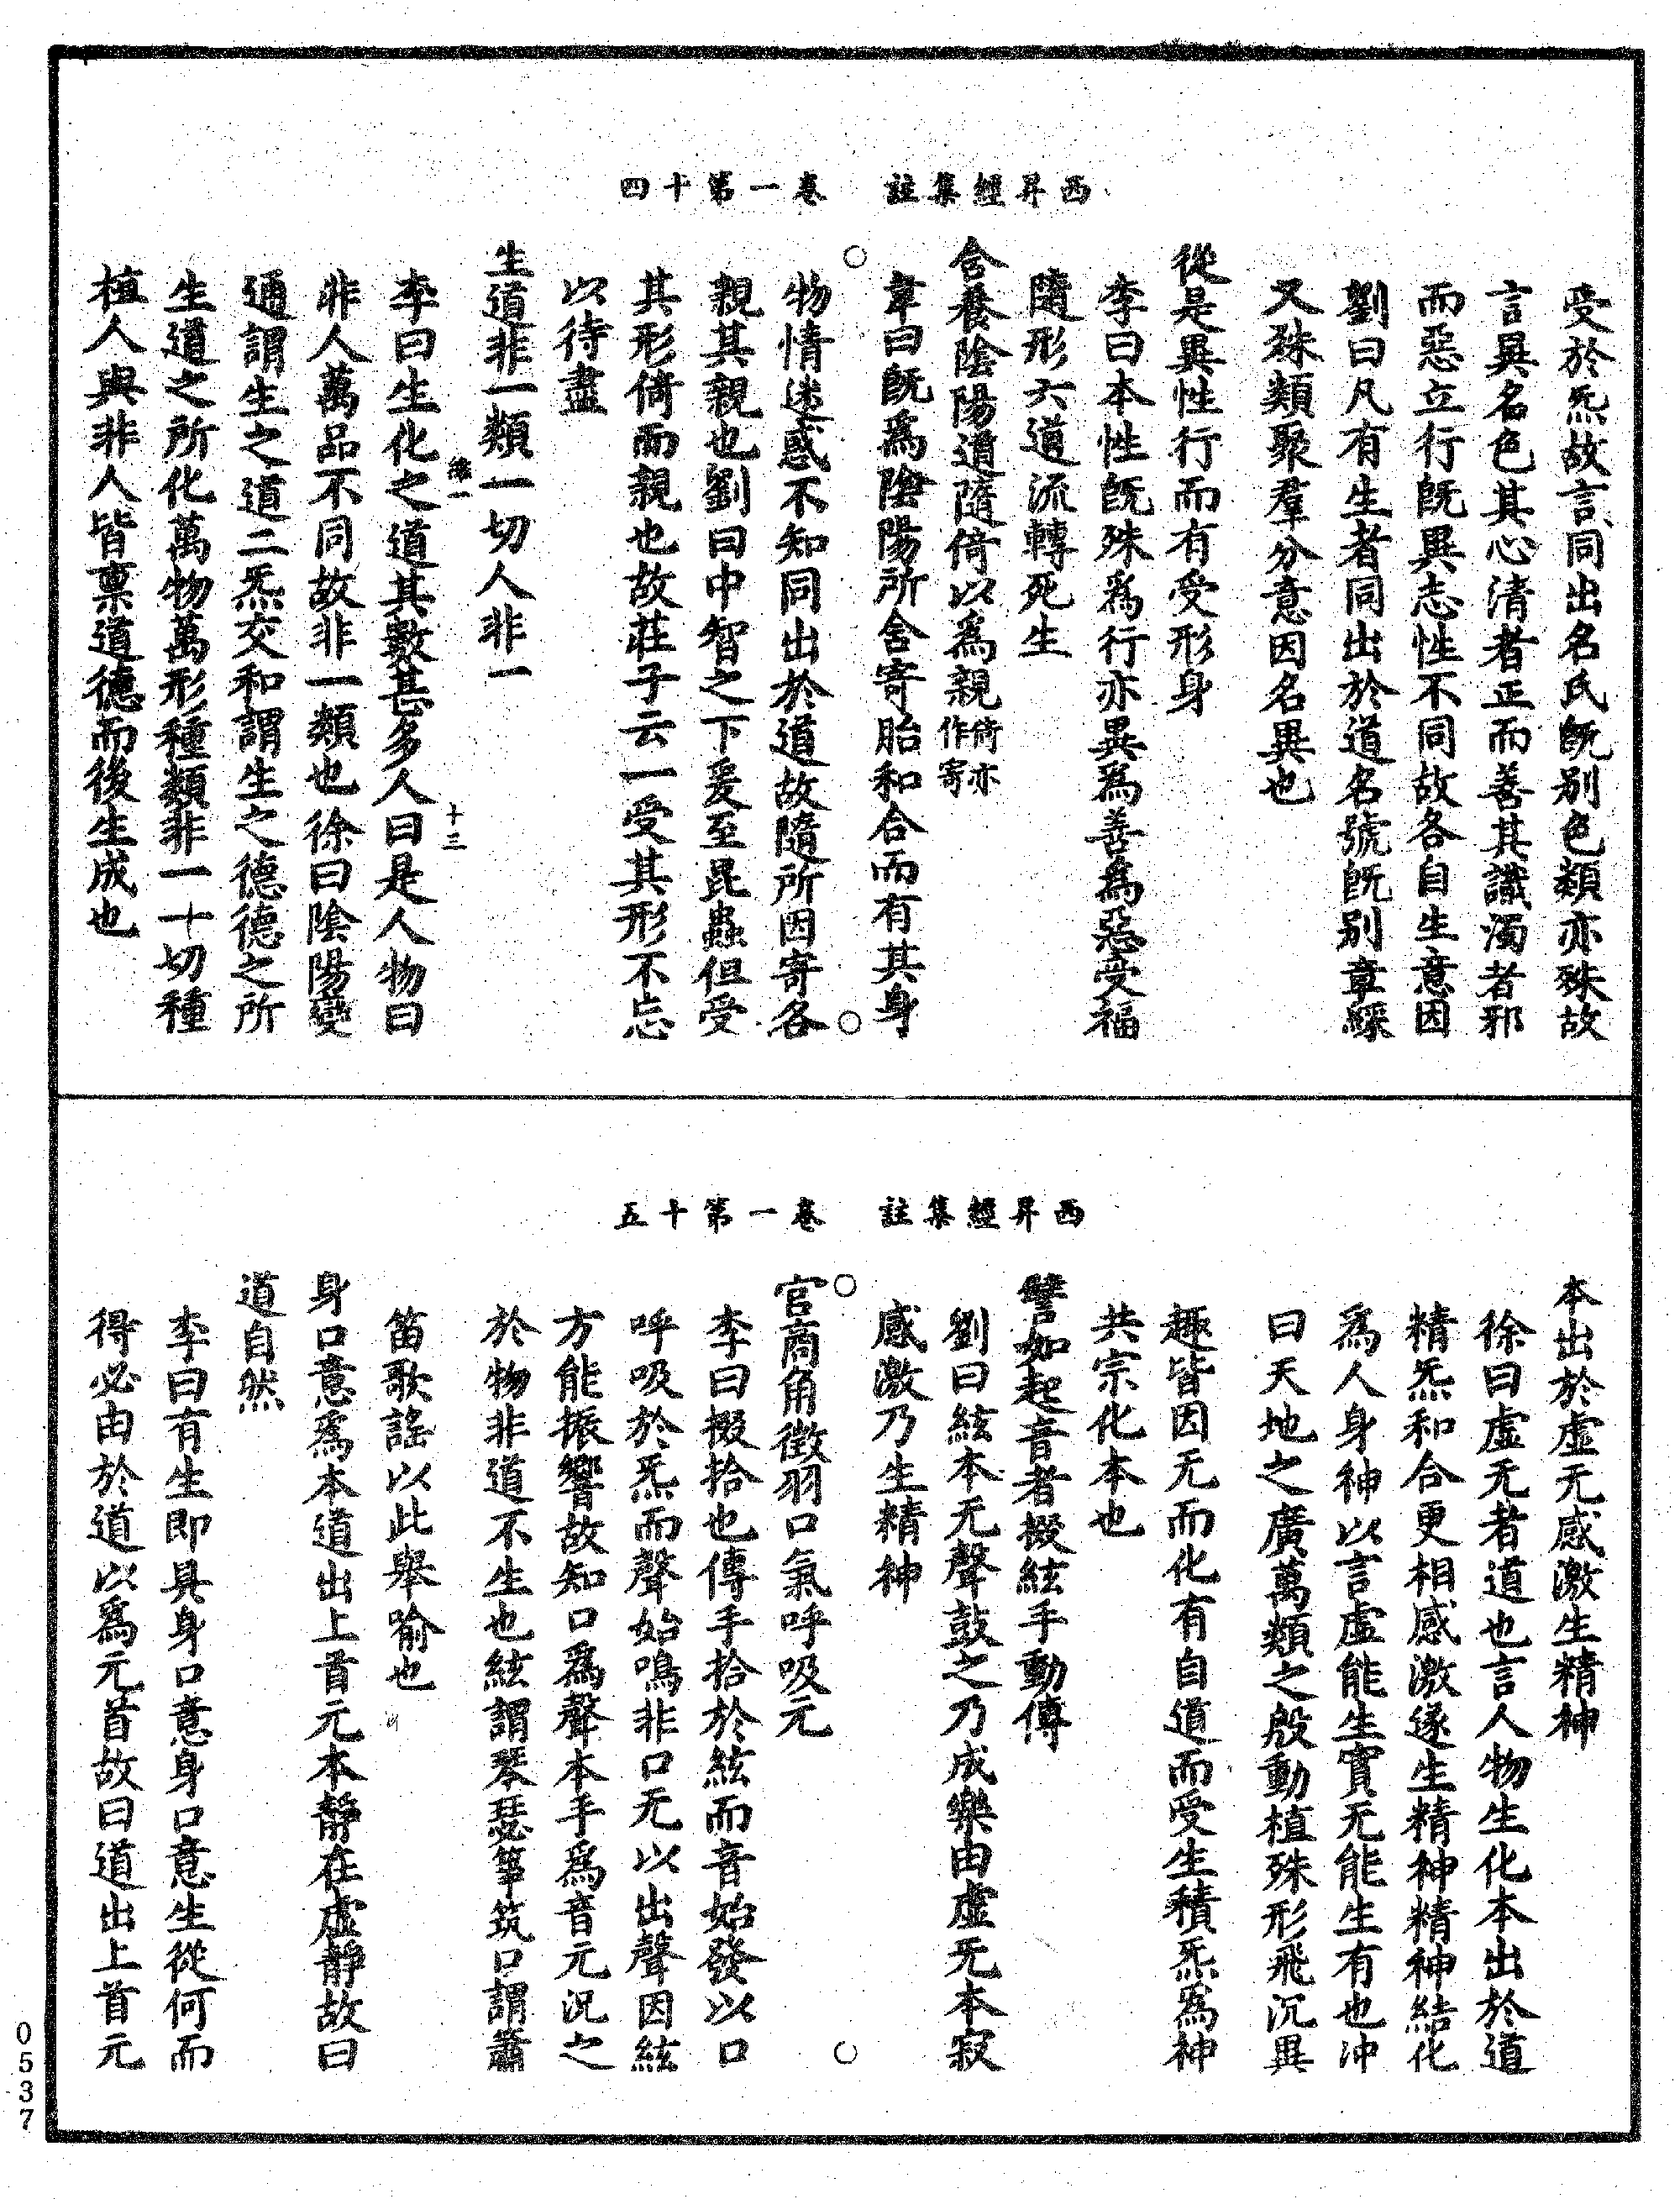 西昇經集註　卷一第十四
受於炁故言同出名氏旣別色類亦殊故
言異名色其心清者正而善其識濁者邪
而惡立行旣異志性不同故各自生意因
劉曰凡有生者同出於道名號旣別章綵
又殊類聚羣分意因名異也
從是異性行而有受形身
李曰本性旣殊爲行亦異爲善爲惡受福
隨形六道流轉死生
含養陰陽道隨倚以爲親倚亦作寄
韋曰旣爲陰陽所含寄胎和合而有其身
物情迷惑不知同出於道故隨所因寄各
親其親也劉曰中智之下爰至昆蟲但受
其形倚而親也故莊子云一受其形不忘
以待盡
生道非一類一切人非一
十三
李曰生化之道其數甚多人曰是人物曰
非人萬品不同故非一類也徐曰陰陽變
通謂生之道二炁交和謂生之德德之所
生道之所化萬物萬形種類非一十切種
植人與非人皆稟道德而後生成也
西昇經集註　卷一第十五
本出於虛无感激生精神
徐曰虛无者道也言人物生化本出於道
精炁和合更相感激遂生精神精神結化
爲人身神以言虛能生實无能生有也沖
曰天地之廣萬類之殷動植殊形飛沉異
趣皆因无而化有自道而受生積炁爲神
共宗化本也
譬如起音者掇絃手動傳
劉曰絃本无聲鼓之乃成樂由虛无本寂
感激乃生精神
官商角徵羽口氣呼吸元
李曰掇拾也傳手拾於絃而音始發以口
呼吸於炁而聲始鳴非口无以出聲因絃
方能振響故知口爲聲本手爲音元況之
於物非道不生也絃謂琴瑟箏筑口謂簫
笛歌謠以此舉喻也
身口意爲本道出上首元本靜在虛靜故曰
道自然
李曰有生即具身口意身口意生從何而
得必由於道以爲元首故曰道出上首元
0537